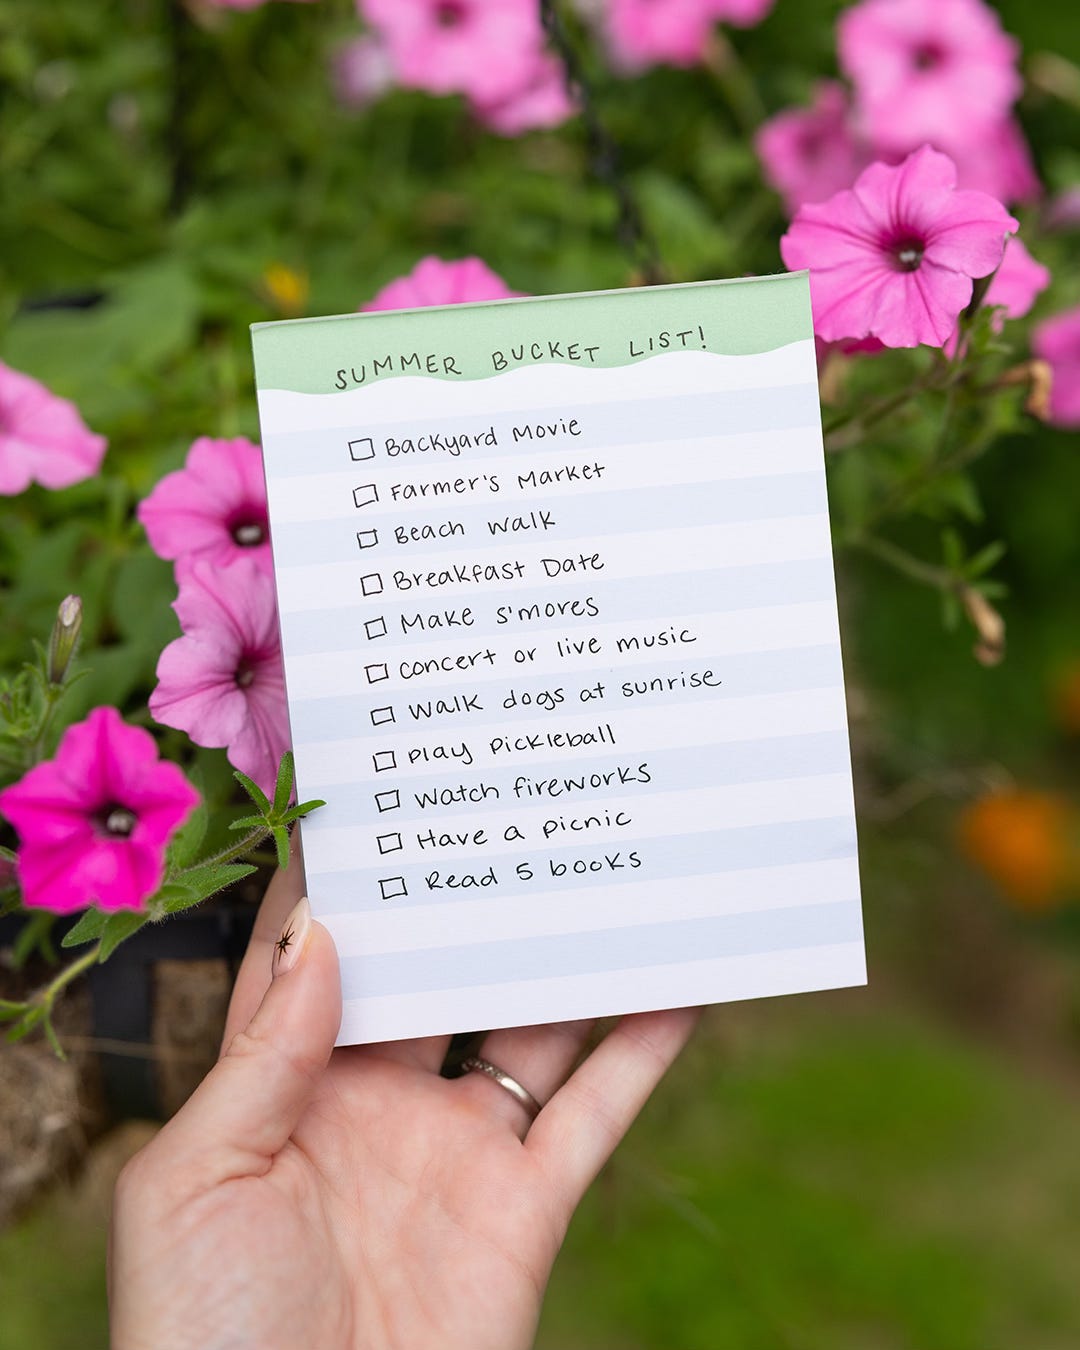 SUMMER BUCKET LIST!
Backyard Movie
Farmer's Market
Beach walk
Breakfast Date
Make s'mores
concert or live music
Walk dogs at sunrise
play pickleball
Watch fireworks
Have a picnic
Read 5 books